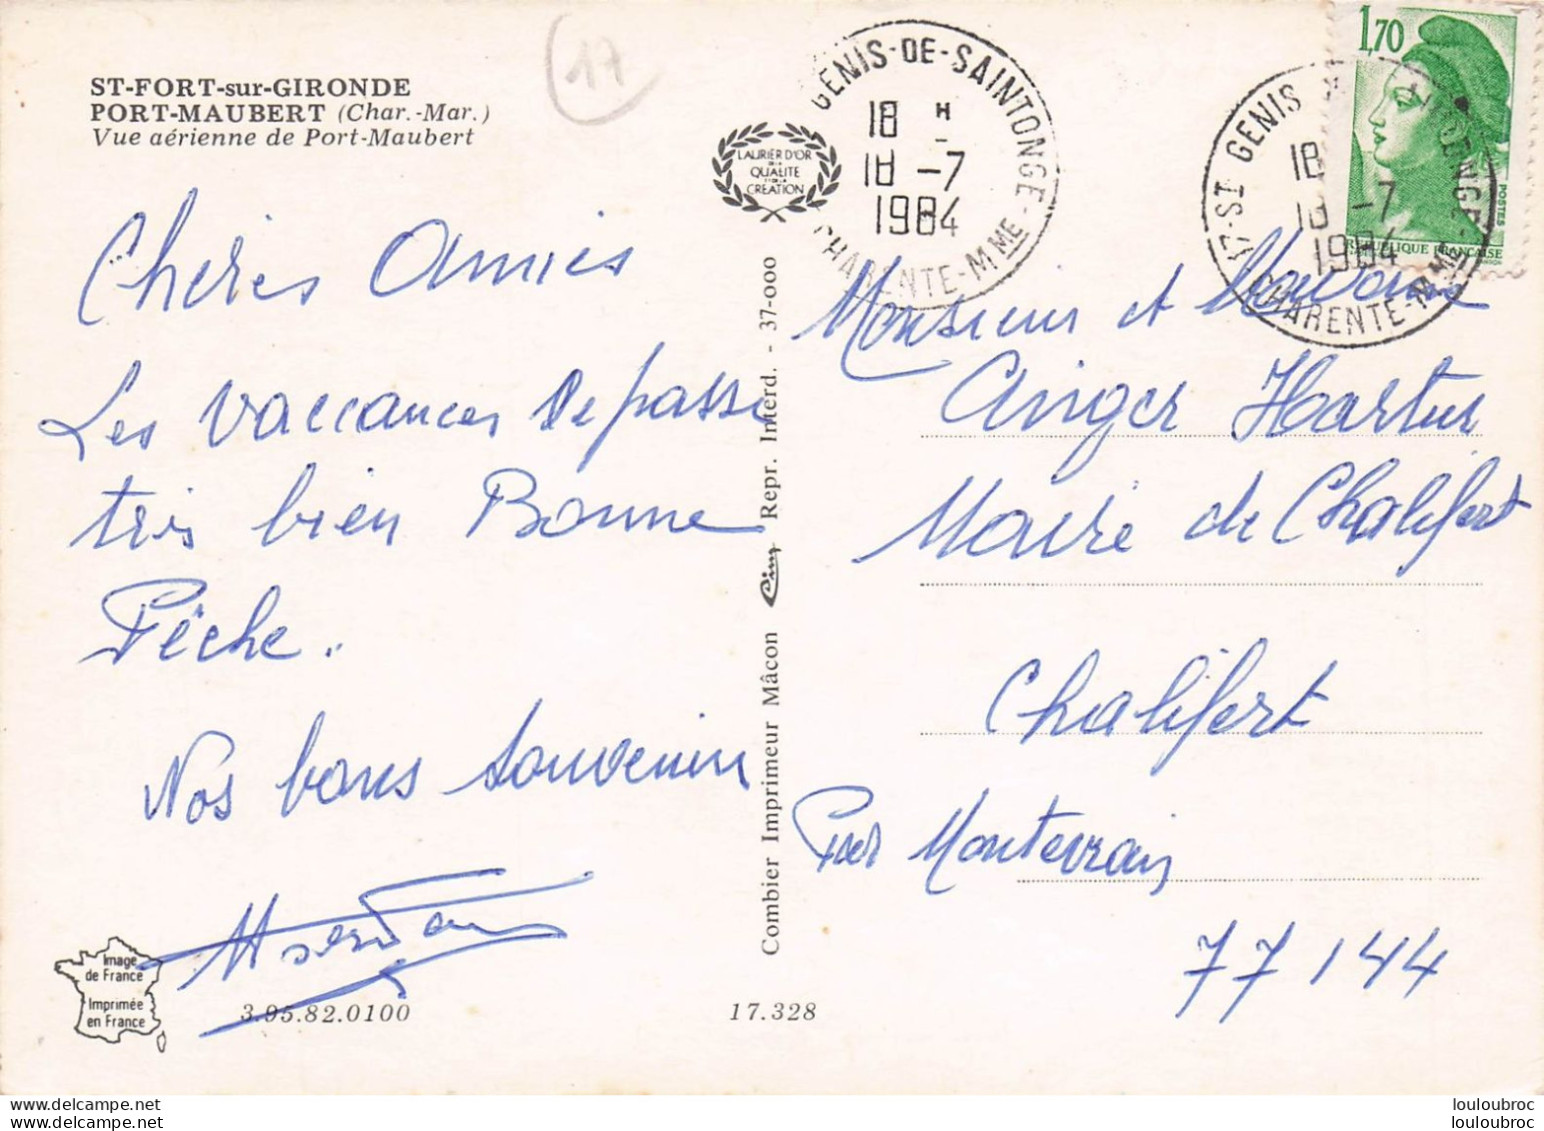 ST-FORT-sur-GIRONDE
PORT-MAUBERT (Char.-Mar.)
Vue aérienne de Port-Maubert
17
LAURIER D'OR
DE LA
QUALITE
ET DE LA
CREATION
GENIS-DE-SAINTONGE-
18 H
18 -7
1984
CHARENTE-MME
17-ST GENIS
18
18 -7
1984
CHARENTE-MME
1,70
POSTES
REPUBLIQUE FRANCAISE
Chères Amies
Les vaccances se passe
très bien Bonne
Pêche.
Nos bons souvenirs
Monsieur et Madame
Anger
Maire de Chalifert
Chalifert
Par Montevrain
77144
Combier Imprimeur Mâcon Cim Repr. Interd. - 37-000
Image
de France
Imprimée
en France
3.95.82.0100
17.328
louloubroc
louloubroc
louloubroc
louloubroc